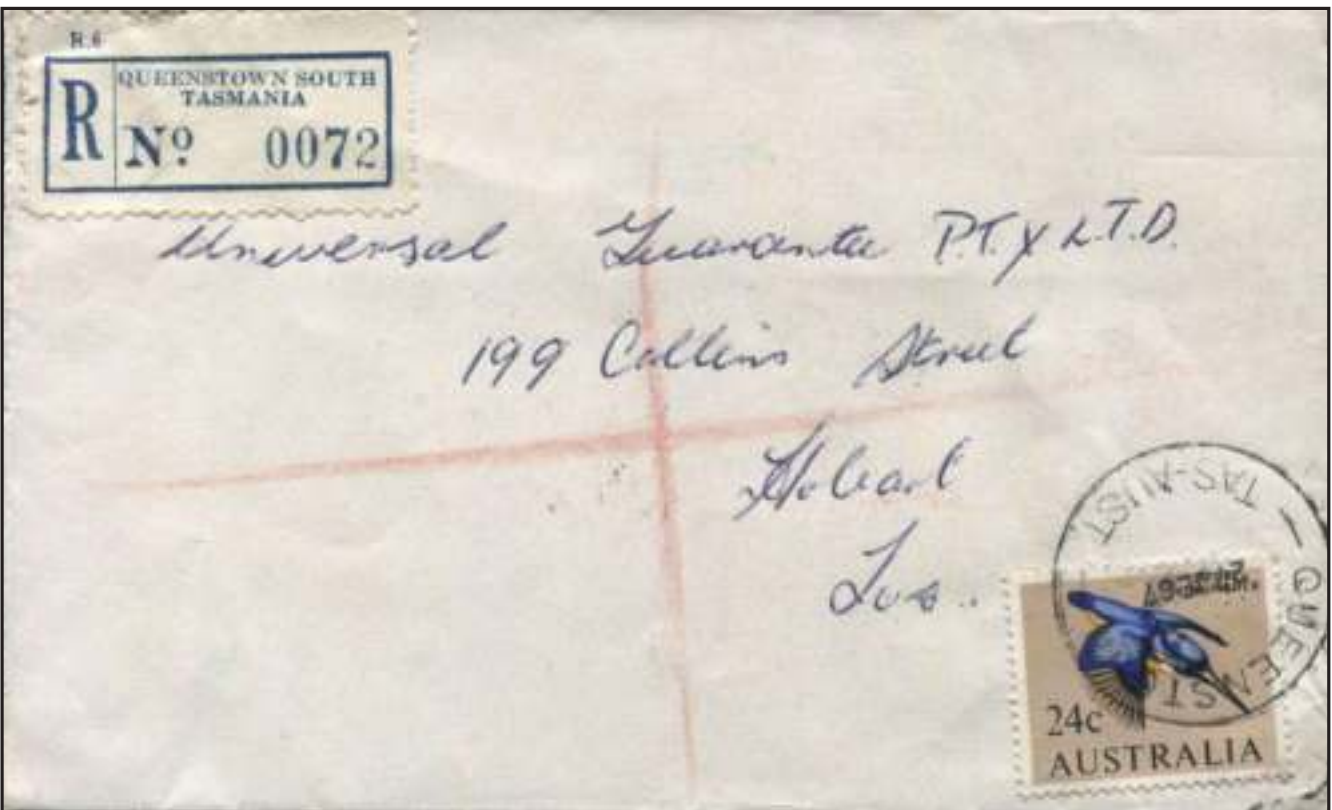 R.6
R
QUEENSTOWN SOUTH
TASMANIA
No 0072
Universal Guarantee P.T.Y L.T.D.
199 Collins Street
Hobart
Tas.
TAS-AUST
QUEENST
24c
AUSTRALIA